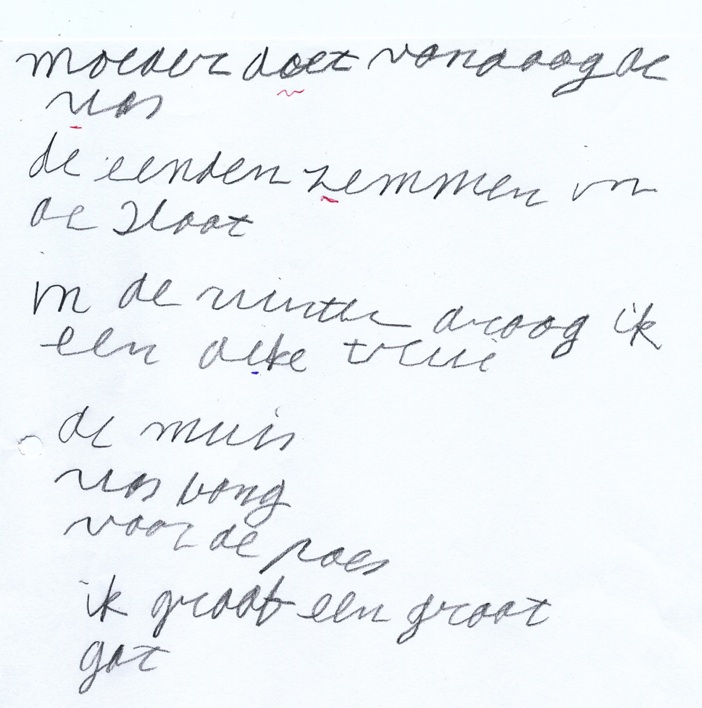 moeder doet vandaag de
was
de eenden zemmen in
de sloot
in de winter draag ik
een dike trui
de muis
was bang
voor de poes
ik graaf een groot
gat